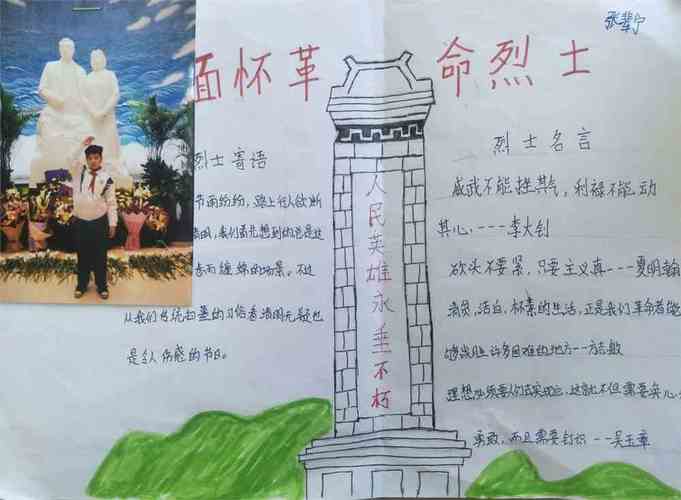 缅怀革命烈士
烈士寄语
节雨纷纷，路上行人欲断
明，我们首先想到的总是这
而缠绵的场景。不过
从我们传统扫墓的习俗看清明无疑也
是令人伤感的节日。
人民英雄永垂不朽
烈士名言
威武不能挫其气，利禄不能动
其心。----李大钊
砍头不要紧，只要主义真---夏明翰
清贫，洁白，朴素的生活，正是我们革命者能
够战胜许多困难的地方--方志敏
理想必须要人们去实现它，这就不但需要决心
勇敢，而且需要知识--吴玉章